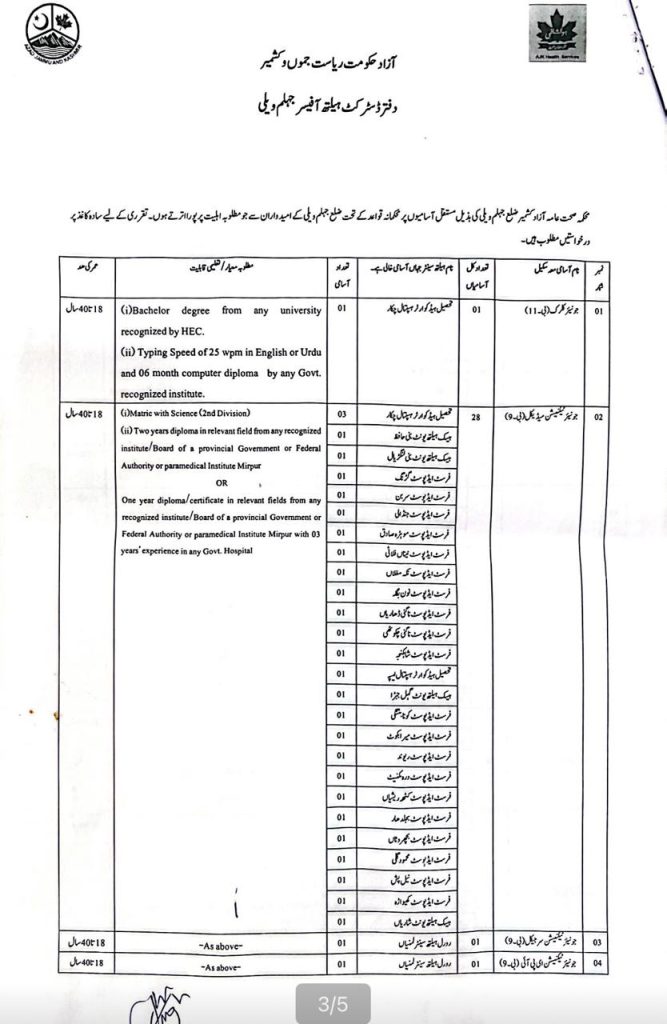 AZAD JAMMU AND KASHMIR
AJK Health Services
آزاد حکومت ریاست جموں و کشمیر
دفتر ڈسٹرکٹ ہیلتھ آفیسر جہلم ویلی
محکمہ صحت عامہ آزاد کشمیر ضلع جہلم ویلی کی بذیل مستقل آسامیوں پر محکمانہ قواعد کے تحت ضلع جہلم ویلی کے امیدواران سے جو مطلوبہ اہلیت پر پورا اترتے ہوں۔ تقرری کے لیے سادہ کاغذ پر
درخواستیں مطلوب ہیں۔
نمبر شمار نام آسامی معہ سکیل تعداد کل آسامیاں نام ہیلتھ سینٹر جہاں آسامی خالی ہے۔ تعداد آسامی مطلوبہ معیار/تعلیمی قابلیت عمر کی حد
01 جونیئر کلرک (بی۔11) 01 تحصیل ہیڈ کوارٹر ہسپتال چکار 01
(i)Bachelor degree from any university
recognized by HEC.
(ii) Typing Speed of 25 wpm in English or Urdu
and 06 month computer diploma by any Govt.
recognized institute.
18 تا 40 سال
02 جونیئر ٹیکنیشن میڈیکل (بی۔9) 28 تحصیل ہیڈ کوارٹر ہسپتال چکار 03
(i)Matric with Science (2nd Division)
(ii) Two years diploma in relevant field from any recognized
institute/Board of a provincial Government or Federal
Authority or paramedical Institute Mirpur
OR
One year diploma/certificate in relevant fields from any
recognized institute/Board of a provincial Government or
Federal Authority or paramedical Institute Mirpur with 03
years' experience in any Govt. Hospital
18 تا 40 سال
بیسک ہیلتھ یونٹ بنی حافظ 01
بیسک ہیلتھ یونٹ بنی لنگڑیال 01
فرسٹ ایڈ پوسٹ گڑنگ 01
فرسٹ ایڈ پوسٹ 01
فرسٹ ایڈ پوسٹ 01
فرسٹ ایڈ پوسٹ موہڑہ صادق 01
فرسٹ ایڈ پوسٹ 01
فرسٹ ایڈ پوسٹ 01
فرسٹ ایڈ پوسٹ نون بگلہ 01
فرسٹ ایڈ پوسٹ 01
فرسٹ ایڈ پوسٹ چکوٹھی 01
فرسٹ ایڈ پوسٹ 01
تحصیل ہیڈ کوارٹر ہسپتال لیپہ 01
بیسک ہیلتھ یونٹ 01
فرسٹ ایڈ پوسٹ 01
فرسٹ ایڈ پوسٹ میرا بکوٹ 01
فرسٹ ایڈ پوسٹ ریوند 01
فرسٹ ایڈ پوسٹ 01
فرسٹ ایڈ پوسٹ ریشیاں 01
فرسٹ ایڈ پوسٹ 01
فرسٹ ایڈ پوسٹ 01
فرسٹ ایڈ پوسٹ محمود گلی 01
فرسٹ ایڈ پوسٹ 01
فرسٹ ایڈ پوسٹ 01
بیسک ہیلتھ یونٹ 01
03 جونیئر ٹیکنیشن سرجیکل (بی۔9) 01 رورل ہیلتھ سینٹر لمنیاں 01 –As above– 18 تا 40 سال
04 جونیئر ٹیکنیشن ای پی آئی (بی۔9) 01 رورل ہیلتھ سینٹر لمنیاں 01 –As above– 18 تا 40 سال
3/5